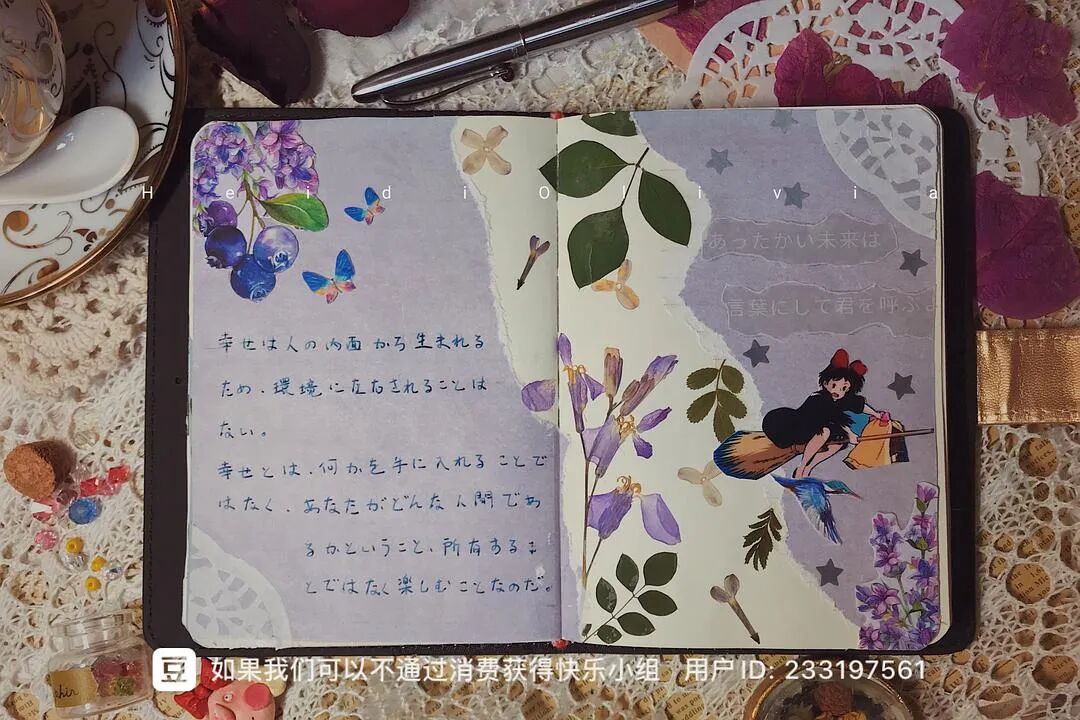 HeidiOlivia
あったかい未来は
言葉にして君を呼ぶよ
幸せは人の内面から生まれる
ため、環境に左右されることは
ない。
幸せとは、何かを手に入れることで
はなく、あなたがどんな人間であ
るかということ、所有するこ
とではなく楽しむことなのだ。
豆 如果我们可以不通过消费获得快乐小组 用户ID: 233197561